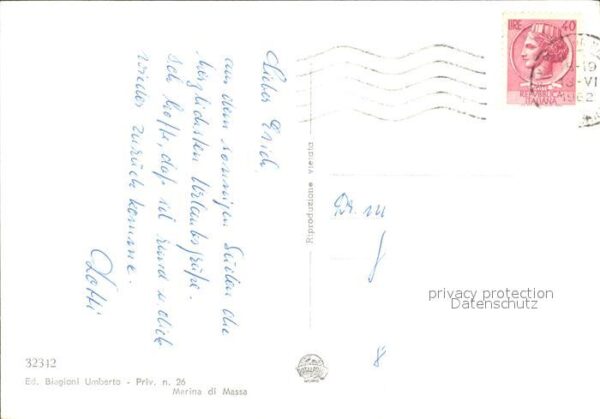 Lieber Erich.
aus dem sonnigen Süden die
herzlichsten Urlaubsgrüße.
Ich hoffe, daß ich rund u. dick
wieder zurück komme.
Lotti
Riproduzione vietata
LIRE 40
REPUBBLICA
ITALIANA
-19
13-VI
1962
privacy protection
Datenschutz
32342
Ed. Biagioni Umberto - Priv. n. 26
Marina di Massa